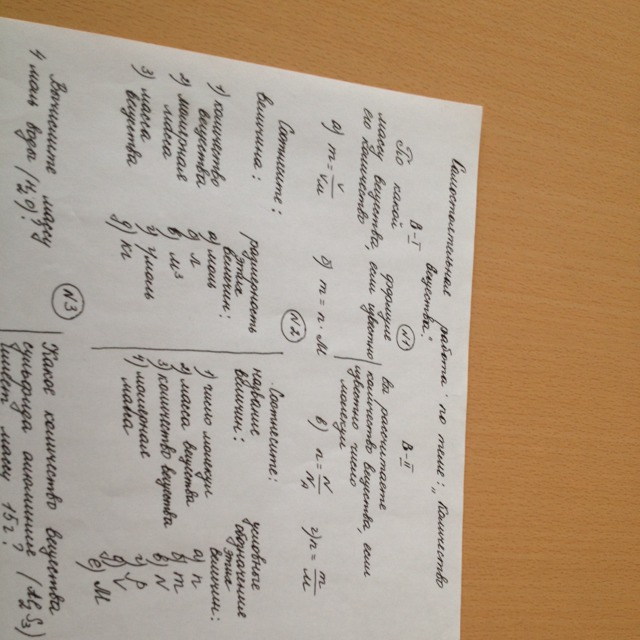 Самостоятельная работа по теме: „Количество
вещества".
В-I
N1
В-II
По какой формуле вы рассчитаете
массу вещества, если известно
его количество
количество вещества, если
известно число
молекул
а) m = V/Vm б) m = n · M в) n = N/NA г) n = m/M
N2
Соотнесите:
величина:
1) количество
вещества
2) молярная
масса
3) масса
вещества
размерность
этих
величин:
а) моль
б) л
в) м³
г) г/моль
д) кг
Соотнесите:
название
величин:
1) число молекул
2) масса вещества
3) количество вещества
4) молярная
масса
условные
обозначения
этих
величин:
а) n
б) m
в) N
г) ρ
д) V
е) M
N3
Вычислите массу
4 моль воды (H₂O)?
Какое количество вещества
сульфида алюминия (Al₂S₃)
имеет массу 15 г?